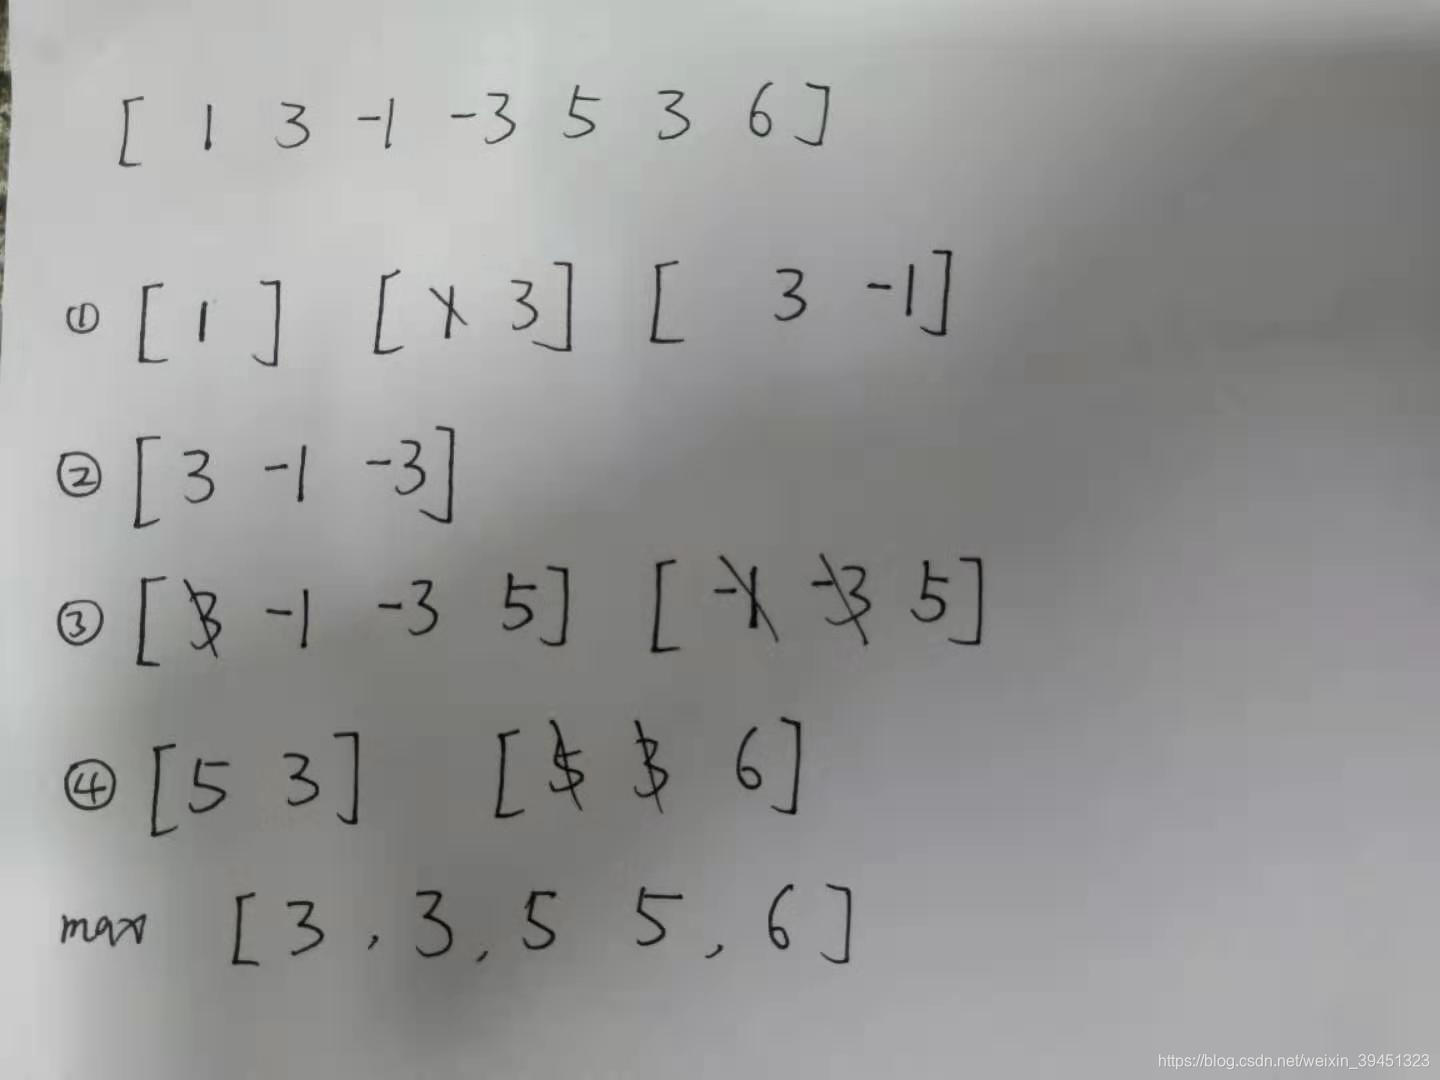 [ 1 3 -1 -3 5 3 6 ]
① [ 1 ] [ 1 3 ] [ 3 -1 ]
② [ 3 -1 -3 ]
③ [ 3 -1 -3 5 ] [ -1 -3 5 ]
④ [ 5 3 ] [ 5 3 6 ]
max [ 3 , 3 , 5 5 , 6 ]
https://blog.csdn.net/weixin_39451323